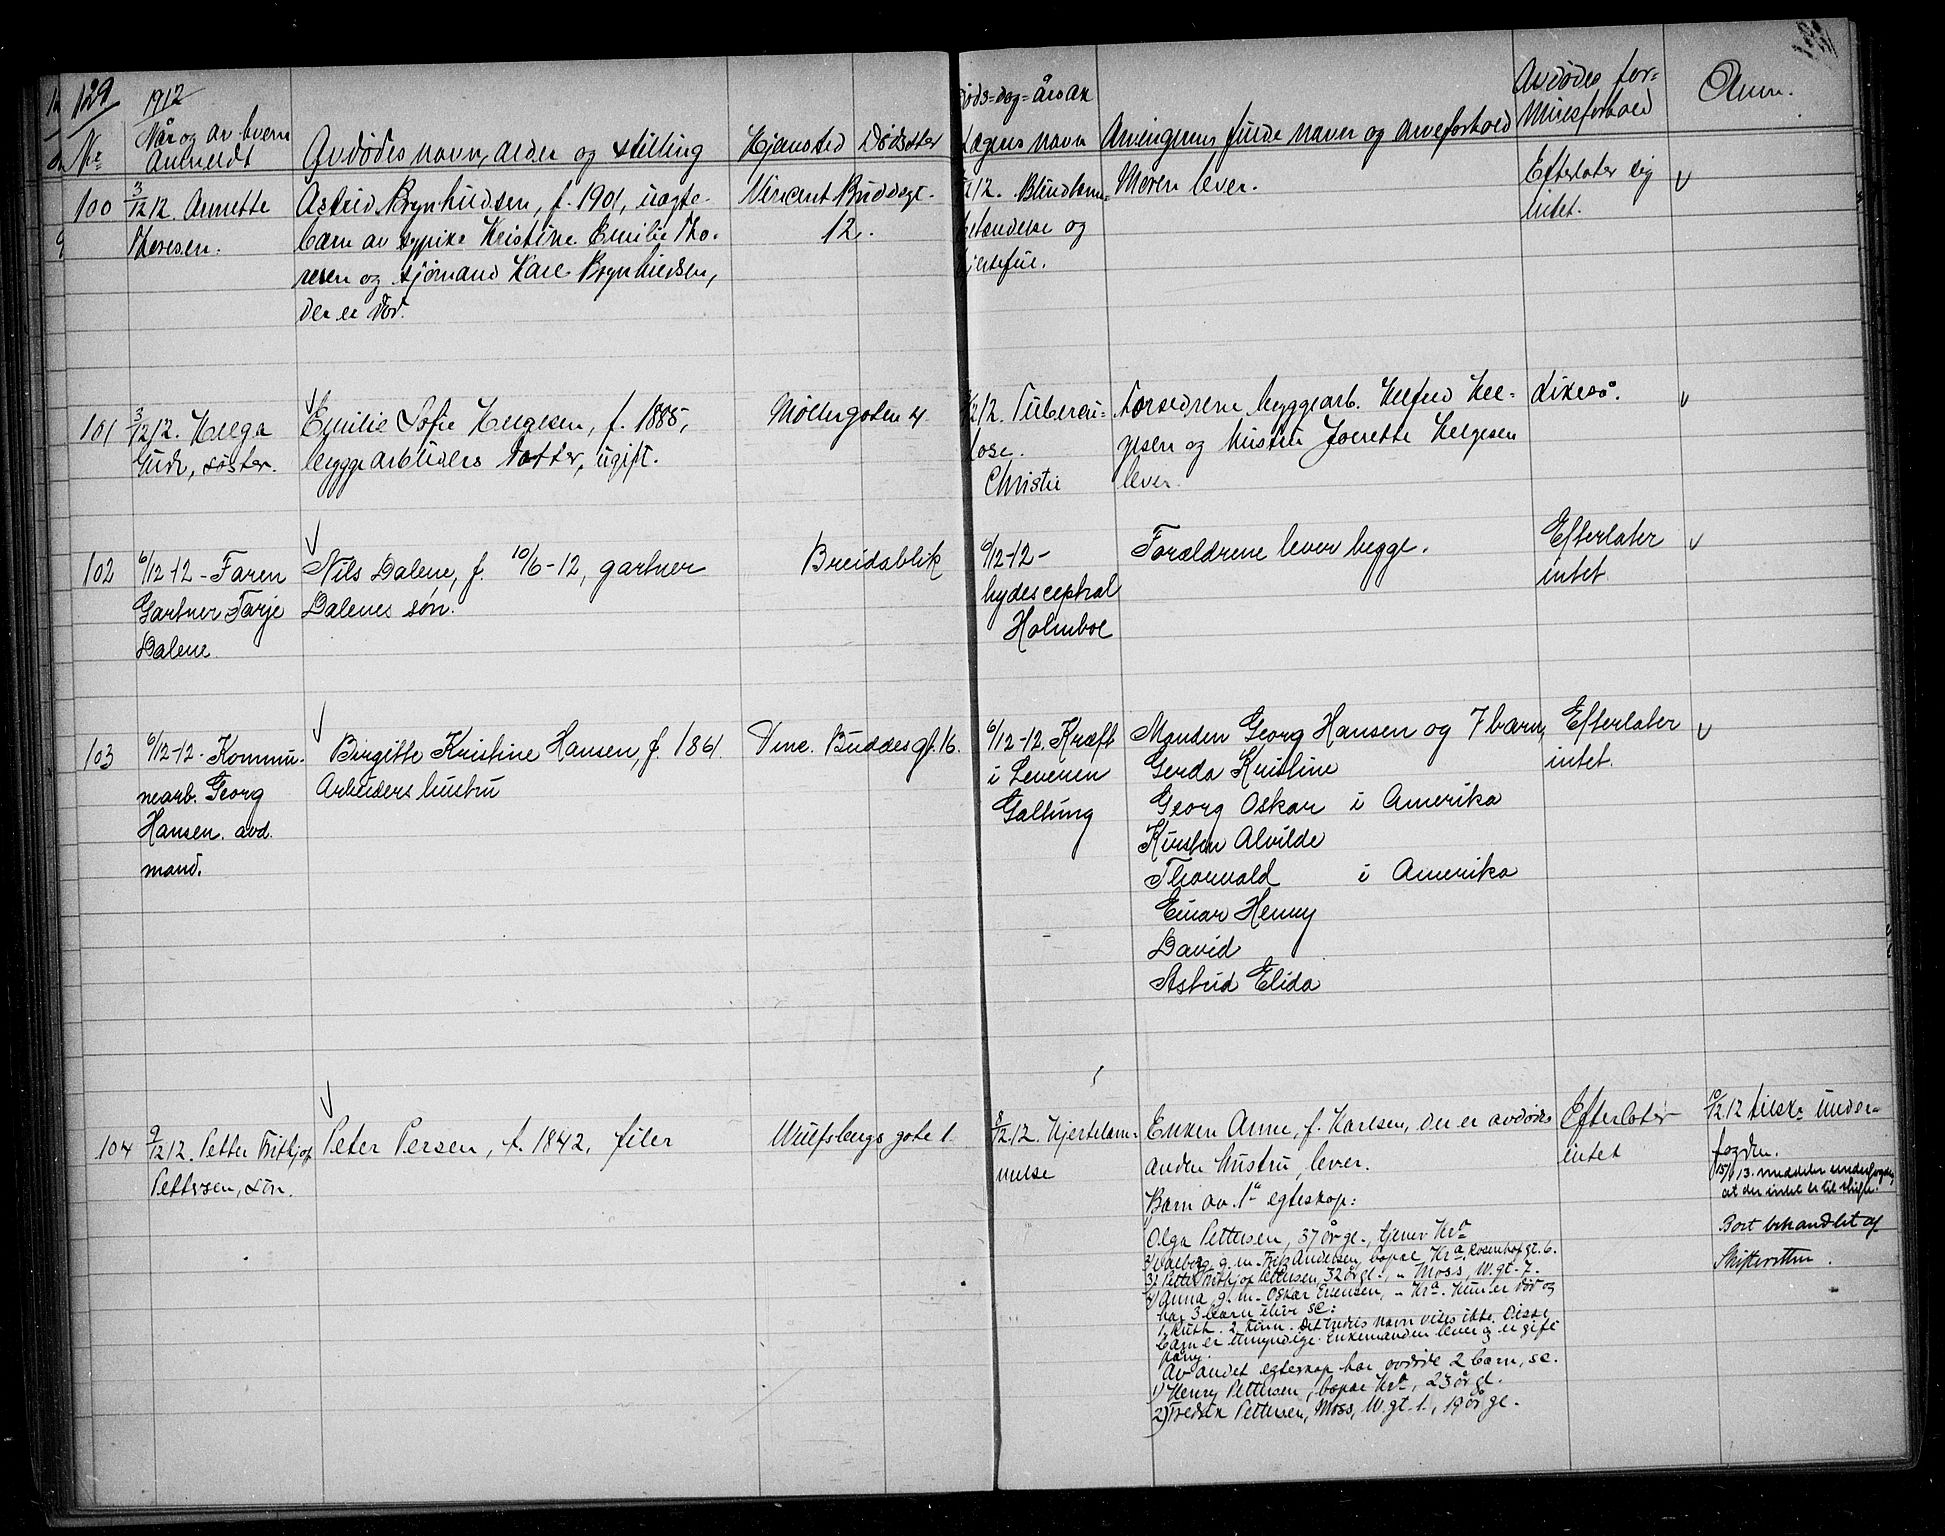 129
1912
Nr
Når og av hvem
anmeldt
Avdødes navn, alder og stilling
Hjemsted
Dødssted
døds-dag-årsak
Lægens navn
Arvingernes fulde navn og arveforhold
Avdødes for-
muesforhold
Anm.
100
3/12 12. Annette
Thoresen.
Astrid Brynhildsen, f. 1901, uægte
barn av typike Kristine Emilie Tho-
resen og sjømand Karl Brynhildsen,
der er død.
Vincent Buddesgt.
12.
12. Blindtarm-
betændelse og
hjertefeil.
Moren lever.
Efterlater sig
intet.
101
3/12 12. Helga
Gude, søster.
Emilie Sofie Helgesen, f. 1885,
byggearbeiders datter, ugift.
Møllergaten 4
12. Tubercu-
lose.
Christie
Forældrene byggearb. Helfred Hel-
gesen og hustru Josette Helgesen
lever.
Likeså.
102
6/12-12 - Faren
Gartner Tarje
Dalene
Nils Dalene, f. 10/6-12, gartner
Dalenes søn.
Breidablik
6/12-12-
hydrocephal
Holmboe
Forældrene lever begge.
Efterlater
intet.
103
6/12-12 - Kommu-
nearb. Georg
Hansen. avd.
mand.
Birgitte Kristine Hansen, f. 1861.
Arbeiders hustru
Vinc. Buddesgt. 16.
6/12-12. Kræft
i Leveren
Galtung
Manden Georg Hansen og 7 barn,
Gerda Kristine
Georg Oskar i Amerika
Kirsten Alvilde
Thorvald i Amerika
Einar Henny
David
Astrid Elida
Efterlater
intet.
104
9/12 12. Petter Fritjof
Pettersen, søn.
Peter Persen, f. 1842, filer
Wulfsbergs gate 1.
8/12 12. Hjertelam-
melse
Enken Anne, f. Karlsen, der er avdødes
anden hustru, lever.
Barn av 1ste egteskap:
Olga Pettersen, 37 år gl., tjener Kra
2) Valborg, g. m. Fritz Andersen, bopæl Kra, Rosenhofgt. 6.
3) Petter Fritjof Pettersen, 32 år gl., - Moss, W.gt. 7.
4) Anna, g. m. Oskar Evensen, - Kra. Hun er død og
har 3 barn ilive se:
1. Ruth. 2. Finn. Det tredies navn vites ikke. Disse
barn er umyndige. Enkemanden lever og er gift
påny.
Av andet egteskap har avdøde 2 barn, se.
1) Henry Pettersen, bopæl Kra, 23 år gl.
2) Fredrik Pettersen, Moss, W.gt. 1., 19 år gl.
Efterlater
intet
9/12 12 tilskr. under-
fogden.
15/1 13. meddeler underfogden,
at der intet er til skifte.
Bort behandlet af
Skifteretten.